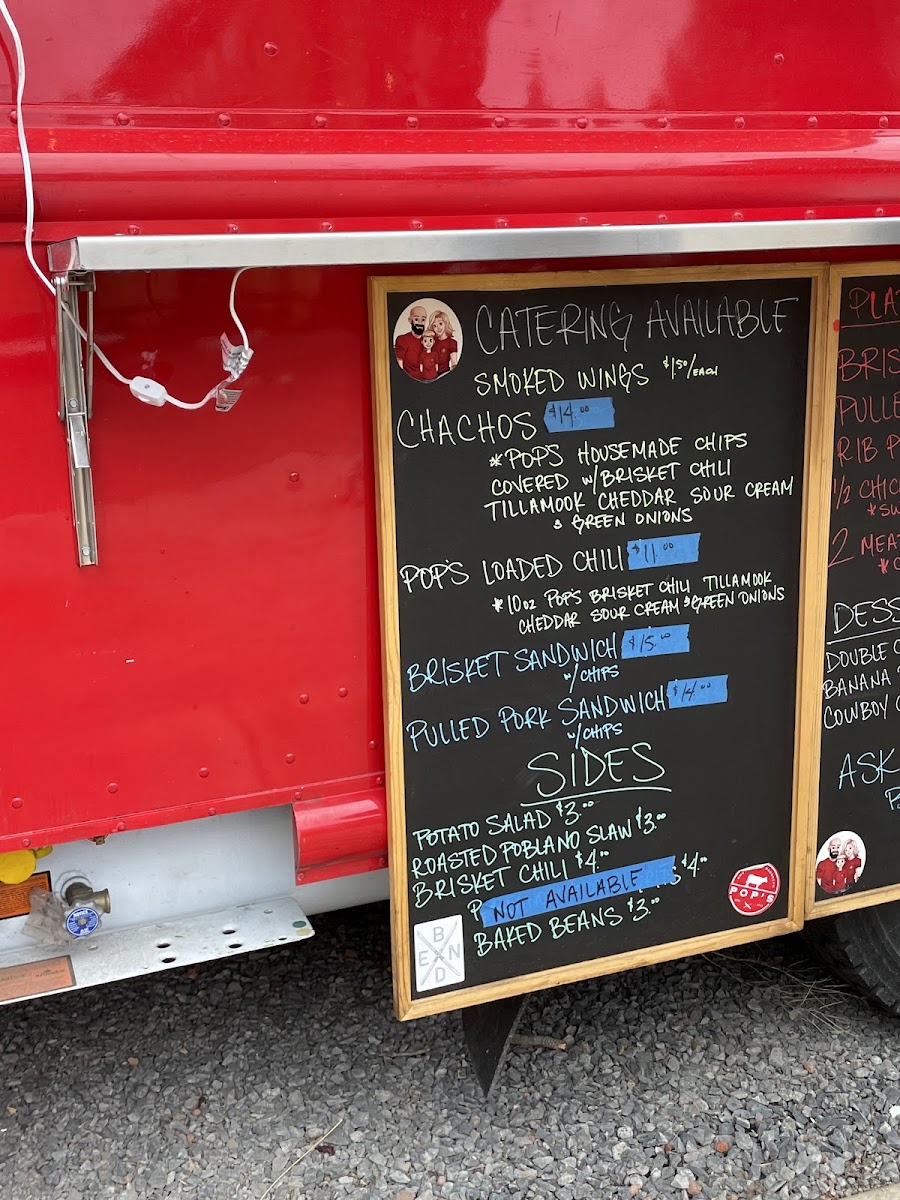 CATERING AVAILABLE
SMOKED WINGS $1.50/EACH
CHACHOS $14.00
*POP'S HOUSEMADE CHIPS
COVERED W/BRISKET CHILI
TILLAMOOK CHEDDAR SOUR CREAM
& GREEN ONIONS
POP'S LOADED CHILI $11.00
*10oz POP'S BRISKET CHILI TILLAMOOK
CHEDDAR SOUR CREAM & GREEN ONIONS
BRISKET SANDWICH $15.00
W/CHIPS
PULLED PORK SANDWICH $14.00
W/CHIPS
SIDES
POTATO SALAD $3.00
ROASTED POBLANO SLAW $3.00
BRISKET CHILI $4.00
P NOT AVAILABLE S $4.00
BAKED BEANS $3.00
BEND
POP'S
PLA
BRIS
PULLE
RIB P
1/2 CHIC
*SW
2 MEAT
DESS
DOUBLE C
BANANA
COWBOY C
ASK